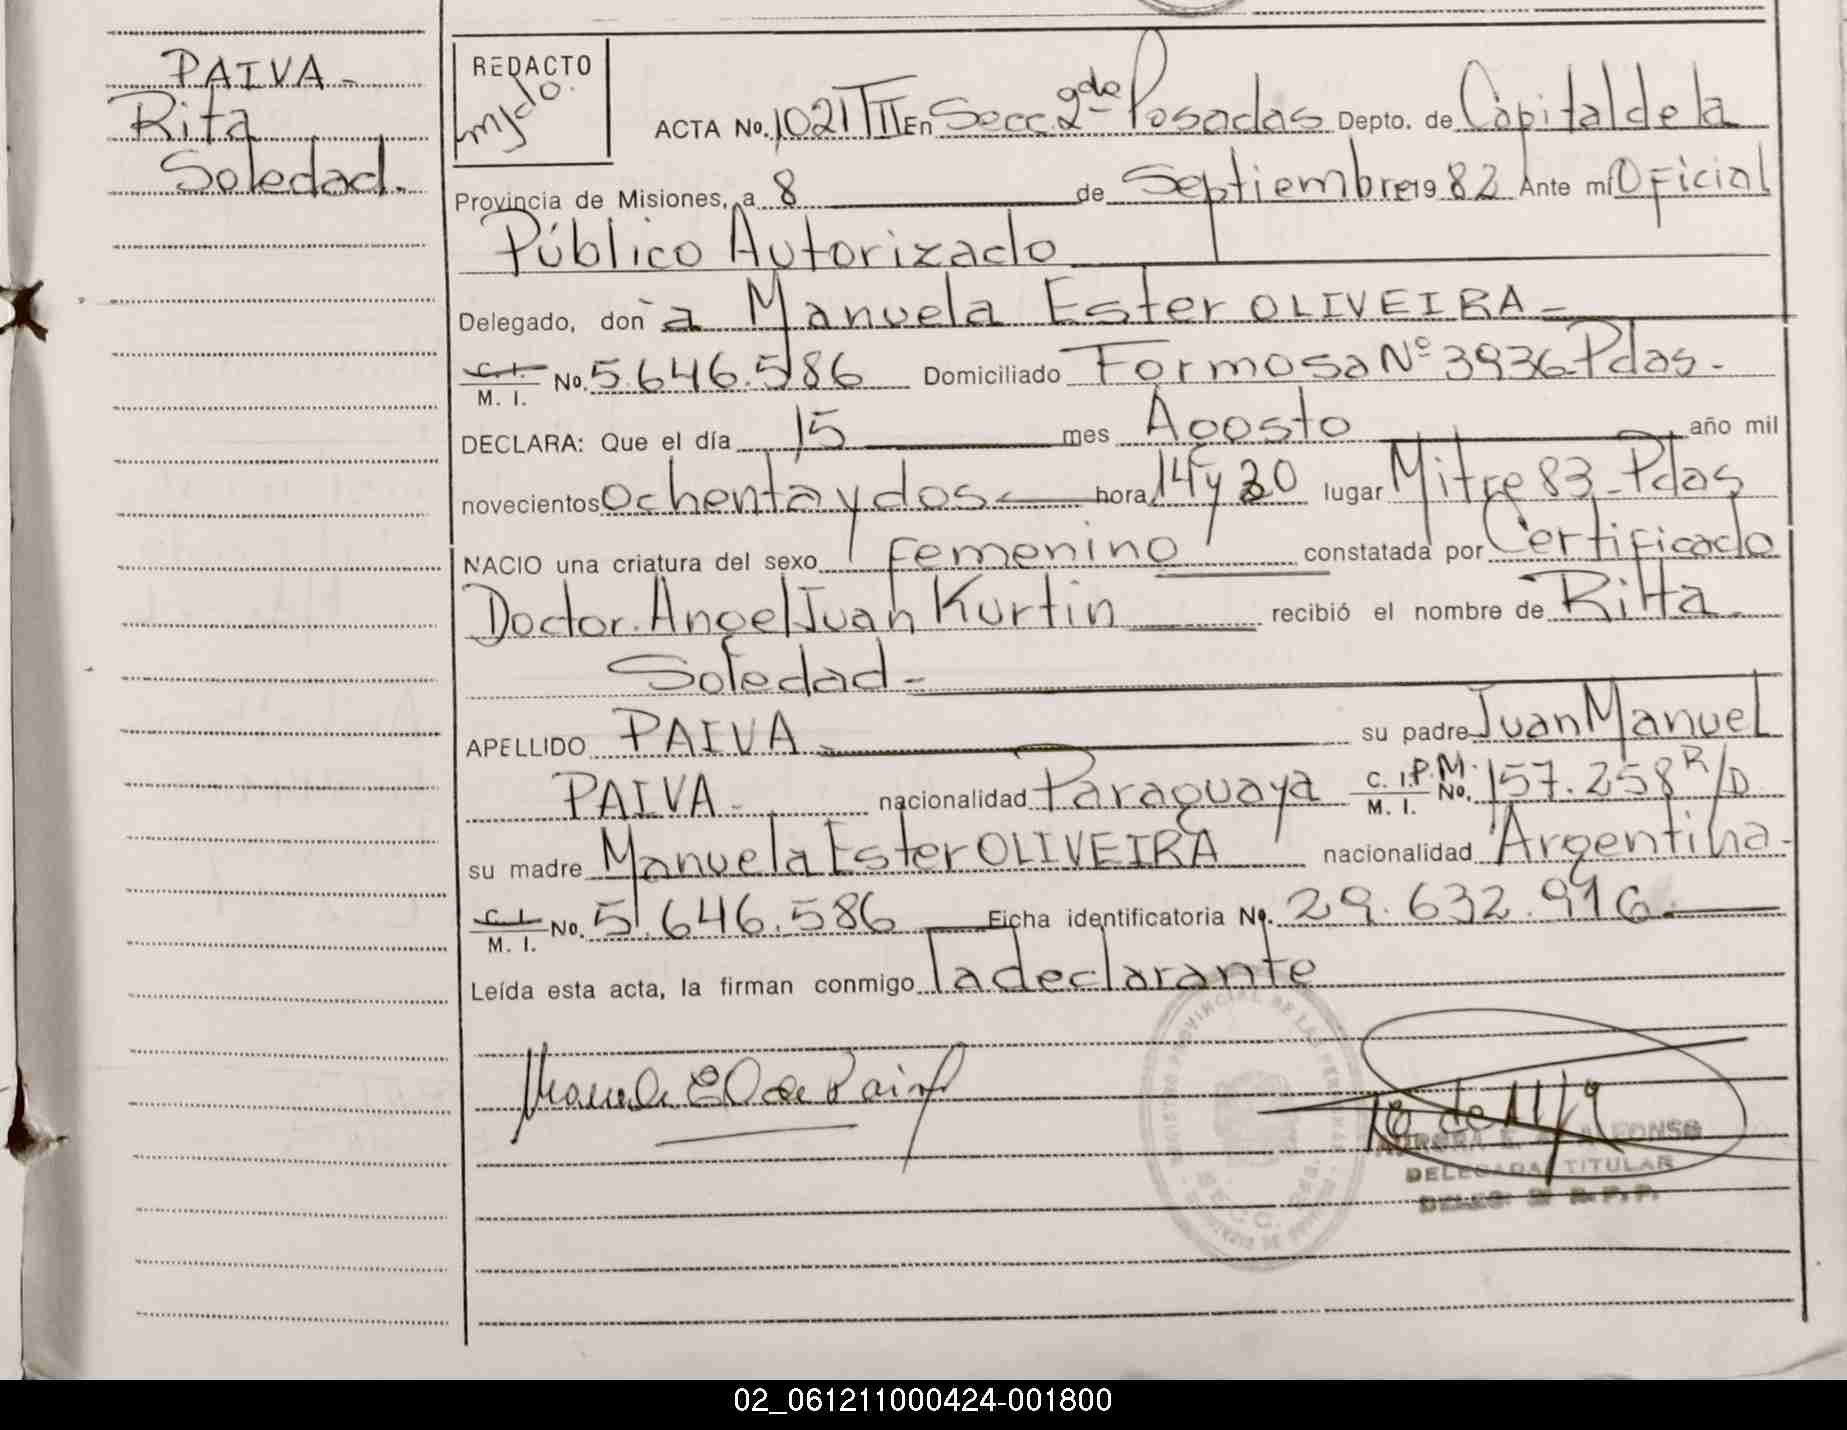 PAIVA-
Rita
Soledad.
REDACTO
mjdo.
ACTA No. 1021 TII En Secc. 2da de Posadas Depto. de Capital de la
Provincia de Misiones, a 8 de Septiembre 19 82 Ante mí Oficial
Público Autorizado
Delegado, don a Manuela Ester OLIVEIRA-
C. I.
M. I. No. 5.646.586 Domiciliado Formosa Nº 3936 Pdas.
DECLARA: Que el día 15 mes Agosto año mil
novecientos ochenta y dos hora 14 y 30 lugar Mitre 83 - Pdas
NACIO una criatura del sexo femenino constatada por Certificado
Doctor. Angel Juan Kurtin recibió el nombre de Rita
Soledad-
APELLIDO PAIVA su padre Juan Manuel
PAIVA- nacionalidad Paraguaya C. I. P. M. No. 157.258 R/D
M. I.
su madre Manuela Ester OLIVEIRA nacionalidad Argentina-
C. I.
M. I. No. 5.646.586 Ficha identificatoria No. 29.632.916.
Leída esta acta, la firman conmigo la declarante
Manuela E O de Paiva
DELEGADA TITULAR
02_061211000424-001800